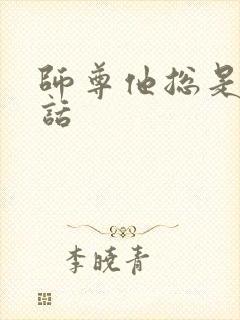 師尊他总是
話
李曉青